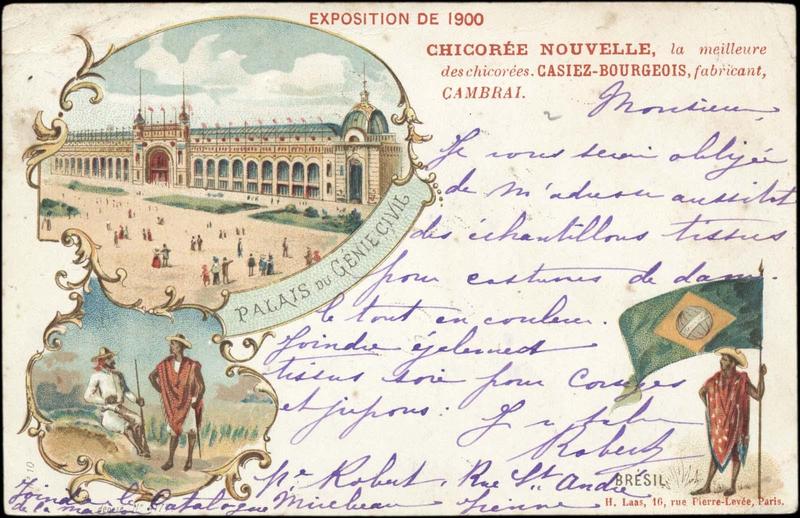 EXPOSITION DE 1900
CHICORÉE NOUVELLE, la meilleure
des chicorées. CASIEZ-BOURGEOIS, fabricant,
CAMBRAI.
PALAIS DU GENIE CIVIL
Monsieur
Je vous serai obligée
de m'adresser aussitôt
des échantillons tissus
pour costumes de dame
le tout en couleur.
Joindre également
tissus soie pour corsages
et jupons:
Robert
Mme Robert, Rue St. André
Mirebeau Vienne
Joindre le Catalogue
de la maison
BRÉSIL
H. Laas, 16, rue Pierre-Levée, Paris.